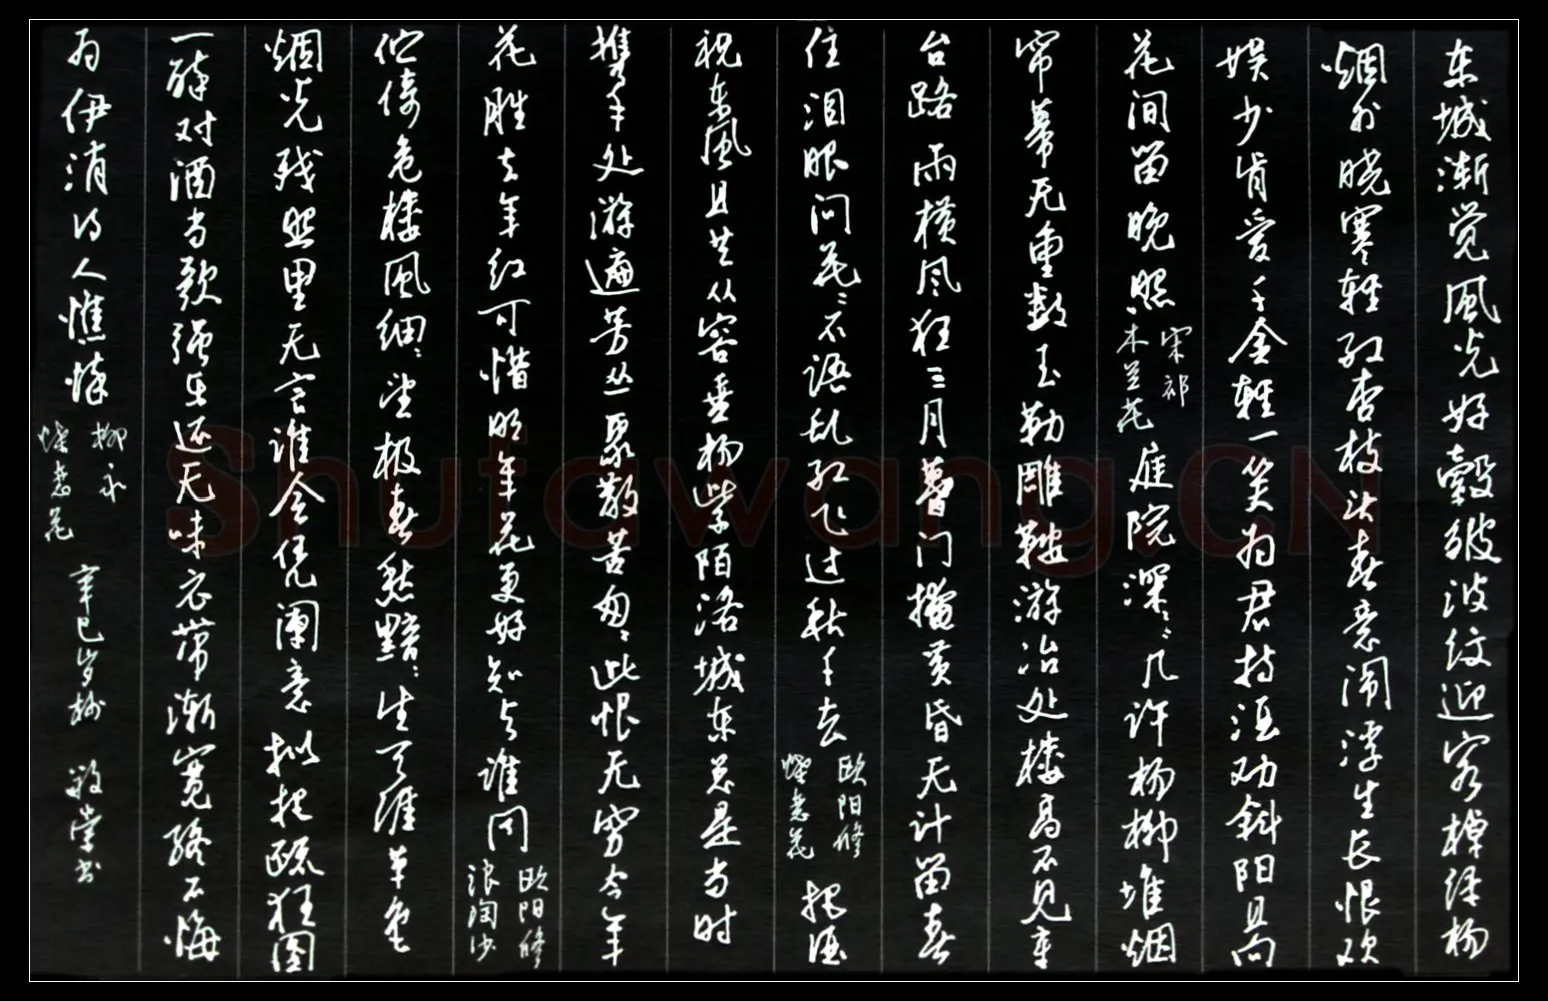 东城渐觉風光好縠皱波纹迎客棹绿杨
烟外晓寒轻红杏枝头春意闹浮生长恨欢
娱少肯爱千金轻一笑为君持酒劝斜阳且向
花间留晚照 宋祁 木兰花 庭院深〻几许杨柳堆烟
帘幕无重数玉勒雕鞍游冶处楼高不见章
台路雨横风狂三月暮门掩黄昏无计留春
住泪眼问花〻不语乱红飞过秋千去 欧阳修 蝶恋花 把酒
祝东風且共从容垂杨紫陌洛城东总是当时
携手处游遍芳丛聚散苦匆〻此恨无穷今年
花胜去年红可惜明年花更好知与谁同 欧阳修 浪淘沙
伫倚危楼風细〻望极春愁黯〻生天涯草色
烟光残照里无言谁会凭阑意拟把疏狂图
一醉对酒当歌强乐还无味衣带渐宽终不悔
为伊消得人憔悴 柳永 蝶恋花 辛巳岁 书
Shufawang.CN